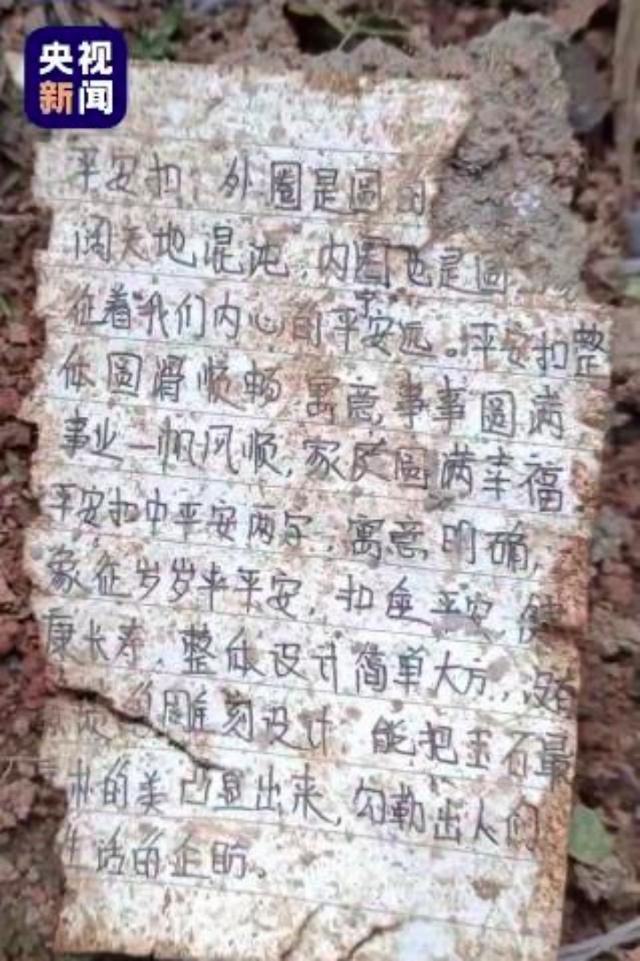 央视
新闻
平安扣,外圈是圆的
阔天地混沌,内圈也是圆
征着我们内心的平安宁远。平安扣整
体圆滑顺畅 寓意事事圆满,
事业一帆风顺,家庭圆满幸福.
平安扣中平安两字,寓意明确,
象征岁岁年平安,扣住平安,健
康长寿,整体设计简单大方,没有
雕刻设计 能把玉石最
的美凸显出来,勾勒出人们
生活的企盼。